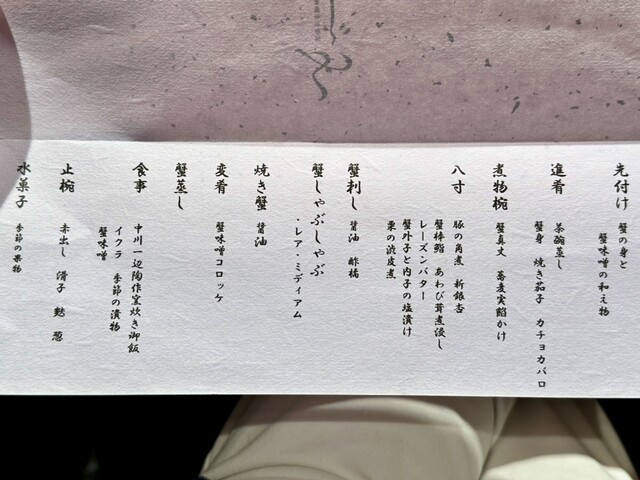 先付け
蟹の身と
蟹味噌の和え物
進肴
茶碗蒸し
蟹身 焼き茄子 カチョカバロ
煮物椀
蟹真丈 蕎麦実餡かけ
八寸
豚の角煮 新銀杏
蟹棒鮨 あわび茸煮浸し
レーズンバター
蟹外子と内子の塩漬け
栗の渋皮煮
蟹刺し
醤油 酢橘
蟹しゃぶしゃぶ
・レア・ミディアム
焼き蟹
醤油
変肴
蟹味噌コロッケ
蟹蒸し
食事
中川一辺陶作窯炊き御飯
イクラ 季節の漬物
蟹味噌
止椀
赤出し 滑子 麩 葱
水菓子
季節の果物